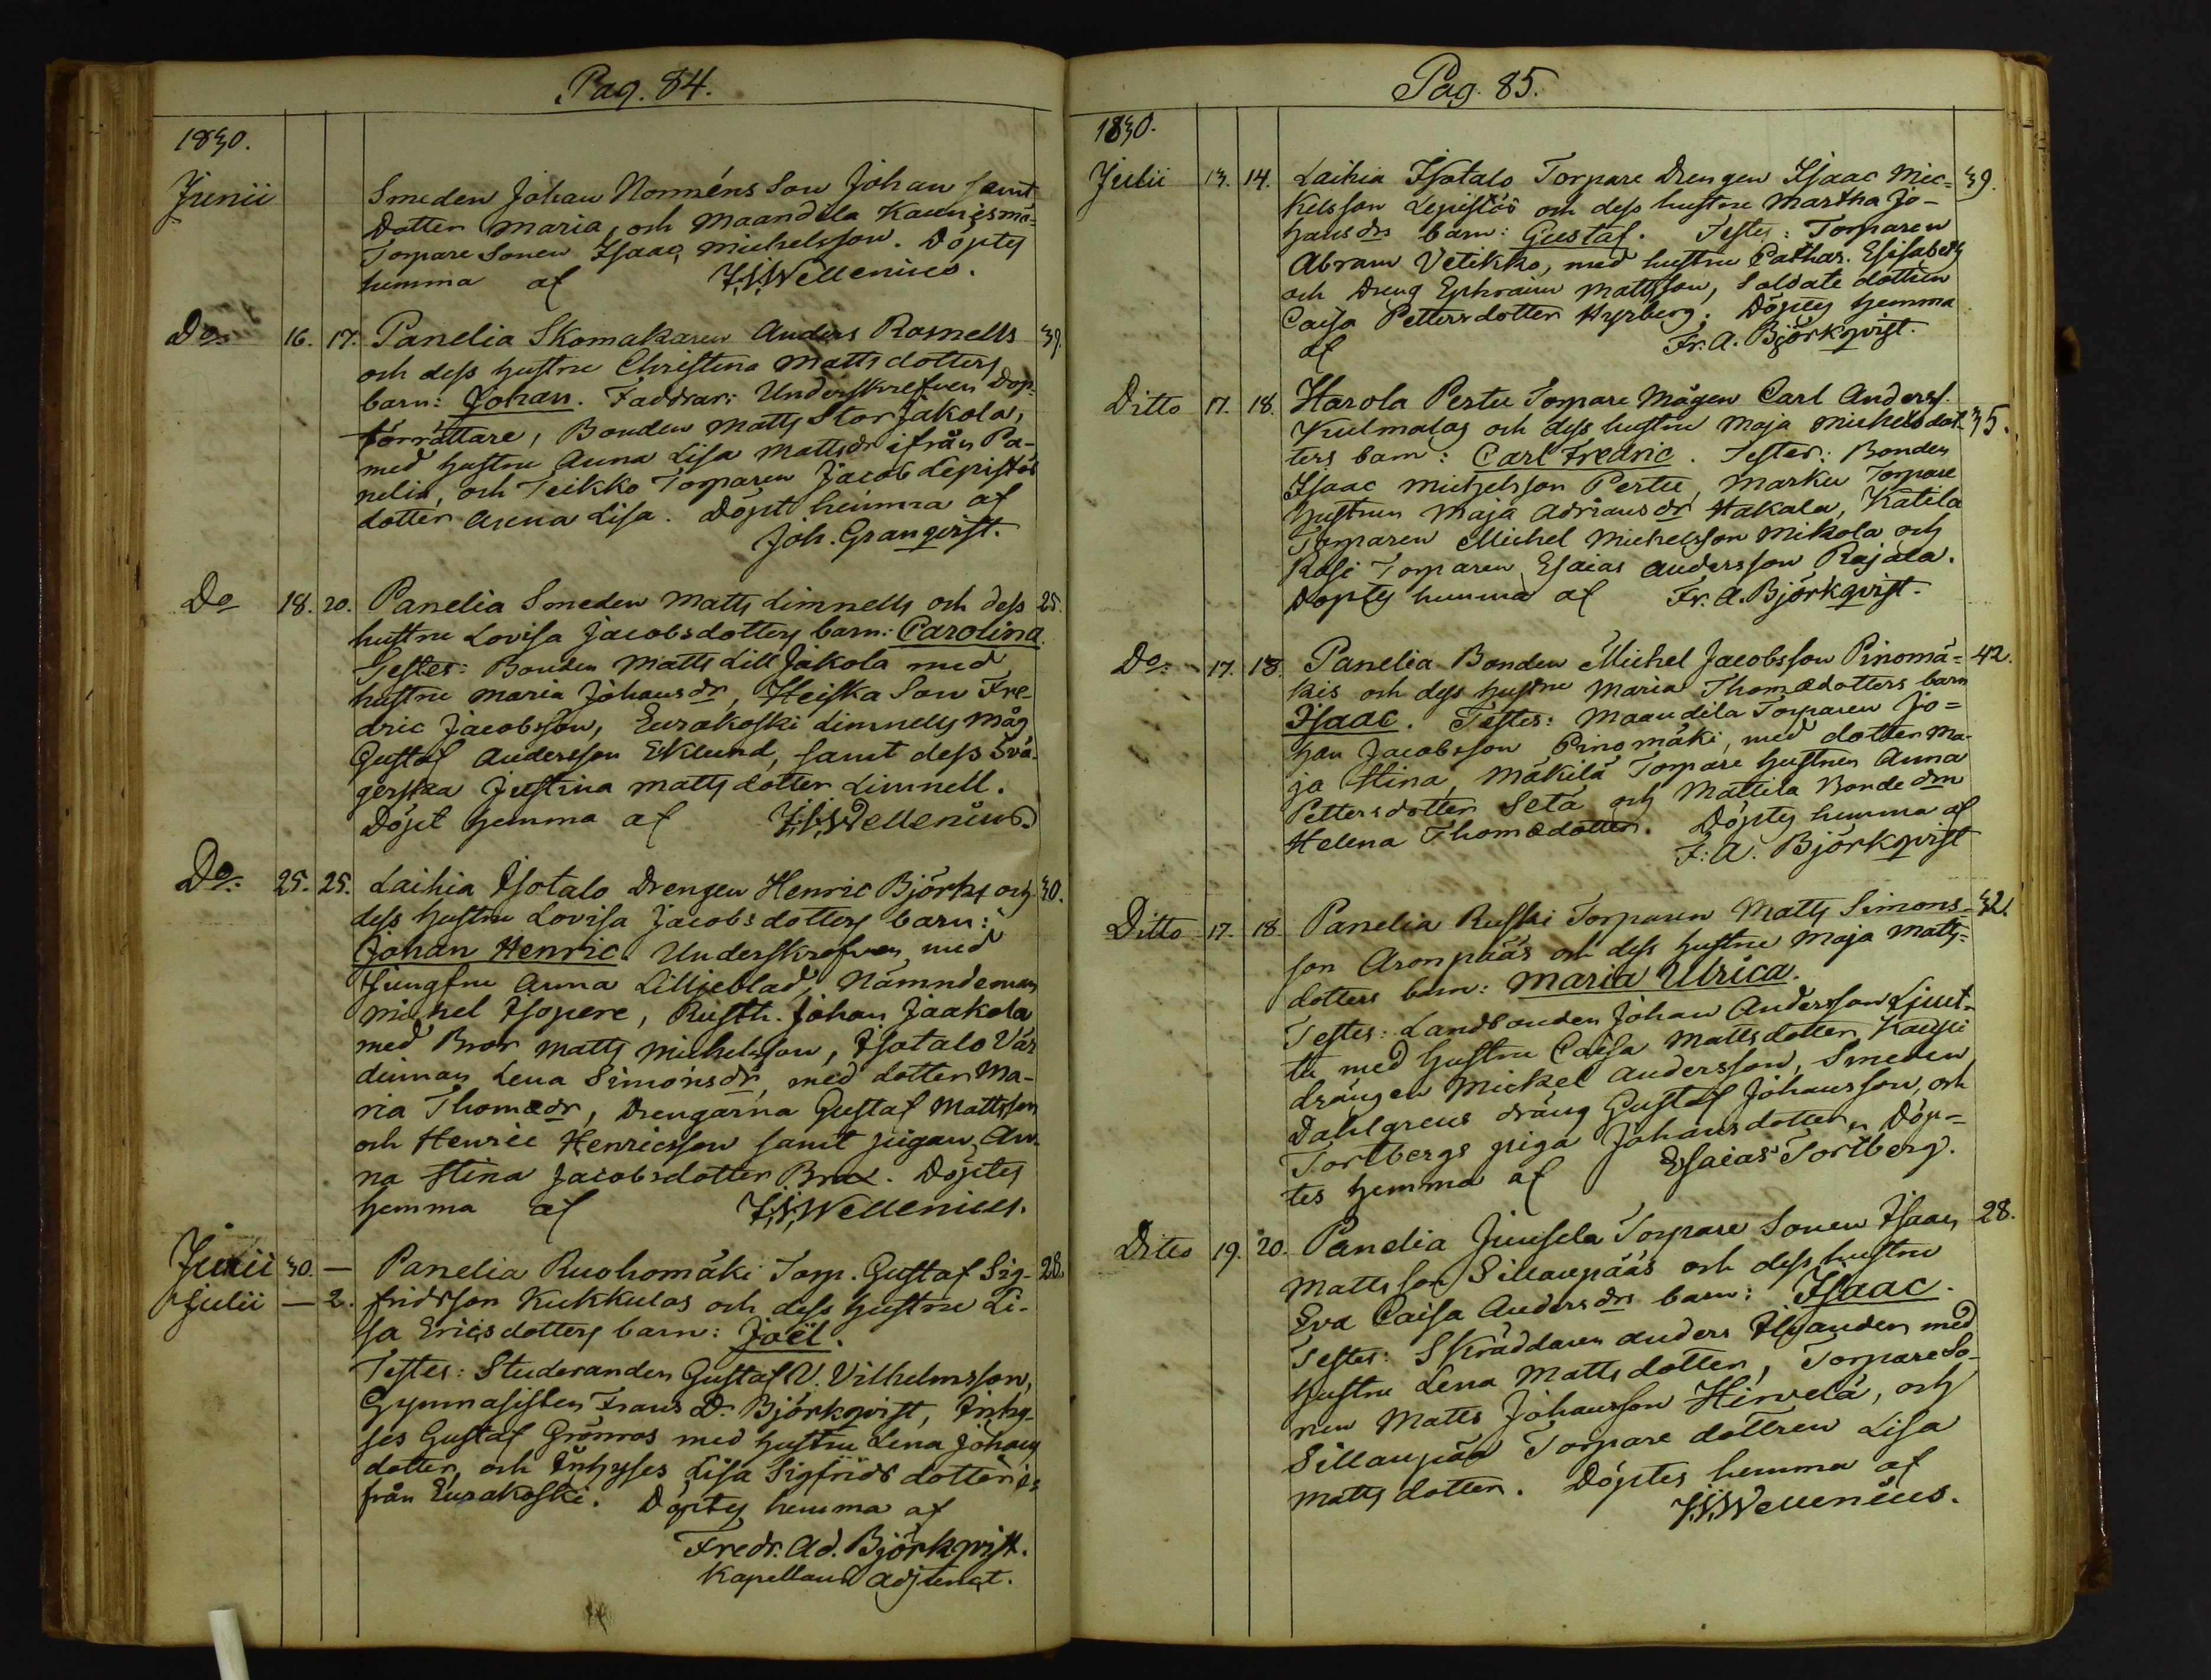 Pag. 84.
1830.
Junii
Smeden Johan Norméns Son Johan samt
Dotter Maria, och Maandila Kaunismä-
Torpare Sonen Isaac Michelsson. Döptes
hemma af J.S. Wellenius.
Do 16. 17. Panelia Skomakaren Anders Rosnells 39.
och dess hustru Christina Mattsdotters
barn: Johan. Faddrar: Underskrefven Dop-
förrättare, Bonden Matts Storjakola,
med hustru Anna Lisa Mattsdr ifrån Pa-
nelia, och Teikko Torparen Jacob Lepistös
dotter Anna Lisa. Döpt hemma af
Joh. Granqvist.
Do 18. 20. Panelia Smeden Matts Limnells och dess 25.
hustru Lovisa Jacobsdotters barn: Carolina.
Testes: Bonden Matts Lill Jakola med
hustru Maria Johansdr, Heiska Son Fre-
dric Jacobsson, Eurakoski Limnells Måg
Gustaf Andersson Eklund, samt dess Svä-
gerska Justina Matts dotter Limnell.
Döpt hemma af J.S. Wellenius.
Do: 25. 25. Laihia Isotalo Drengen Henric Björks och 30.
dess hustru Lovisa Jacobsdotters barn:
Johan Henric. Underskrefven med
Jungfru Anna Lilljeblad, Nämndeman
Michel Isopere, Rusth. Johan Jaakola
med Bror Matts Michelsson, Isotalo Vär
dinnan Lena Simonsdr, med dotter Ma-
ria Thomædr, Drengarna Gustaf Mattsson
och Henric Henricsson samt pigan An-
na Stina Jacobsdotter Brax. Döptes
hemma af J.S. Wellenius.
Junii 30. — Panelia Ruohomäki Torp. Gustaf Sig- 28.
Julii — 2. fridsson Kukkulas och dess hustru Li-
sa Ericsdotters barn: Joël.
Testes: Studeranden Gustaf V. Vilhelmsson,
Gymnasisten Frans D. Björkqvist, Inhy-
ses Gustaf Grönros med hustru Lena Johans
dotter, och Inhyses Lisa Sigfrids dotter i-
från Eurakoski. Döptes hemma af
Fredr. Ad. Björkqvist.
Kapellans Adjunct.
Pag. 85.
1830.
Julii 13. 14. Laihia Isotalo Torpare Drengen Isaac Mic- 39.
kelsson Lepistös och dess hustru Martha Jo-
hansdrs barn: Gustaf. Testes: Torparen
Abram Vetikko, med hustru Cathar. Elisabeth
och Dreng Ephraim Mattsson, Soldate dottren
Caisa Pettersdotter Hyrberg. Döptes hemma
af Fr. A. Björkqvist.
Ditto 17. 18. Harola Pertu Torpare Mågen Carl Anderss.
Kulmalas och dess hustru Maja Michelsdot- 35.
ters barn: Carl Fredric. Testes: Bonden
Isaac Michelsson Pertu, Marku Torpare
hustrun Maja Adriansdr Hakala, Katila
Torparen Michel Michelsson Mikola och
Kasi Torparen Esaias Andersson Rajala.
Döptes hemma af Fr. A. Björkqvist.
Do: 17. 18. Panelia Bonden Michel Jacobsson Pinomä- 42.
kis och dess hustru Maria Thomædotters barn
Isaac. Testes: Maandila Torparen Jo=
han Jacobsson Pinomäki, med dotter Ma-
ja Stina, Mäkilä Torpare hustrun Anna
Pettersdotter Setä och Mattila Bonde drn
Helena Thomædotter. Döptes hemma af
F. A. Björkqvist
Ditto 17. 18 Panelia Ruski Torparen Matts Simons- 32.
son Aronpääs och dess hustru Maja Matts-
dotters barn: Maria Ulrica.
Testes: Landbonden Johan Andersson Ljunt-
tu med hustru Caisa Mattsdotter, Kaupi
drängen Mickel Andersson, Smeden
Dahlgrens dräng Gustaf Johansson, och
Tortbergs piga Johansdotter. Döp-
tes hemma af Esaias Tortberg.
Ditto 19. 20. Panelia Juusela Torpare Sonen Isaac 28.
Mattsson Sillanpääs och dess hustru
Eva Caisa Andersdrs barn: Isaac.
Testes: Skräddaren Anders Ilvanden med
hustru Lena Mattsdotter, Torpare So-
nen Matts Johansson Hirvelä, och
Sillanpää Torpare dottren Lisa
Mattsdotter. Döptes hemma af
J.S. Wellenius.